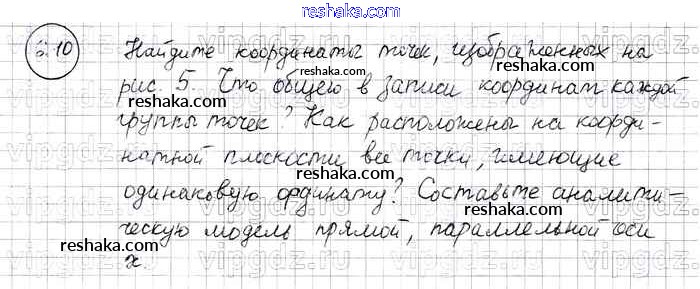 reshaka.com
2.10
Найдите координаты точек, изображенных на
рис. 5. Что общего в записи координат каждой
группы точек? Как расположены на коорди-
натной плоскости все точки, имеющие
одинаковую ординату? Составьте аналити-
ческую модель прямой, параллельной оси
x.
reshaka.com
reshaka.com
reshaka.com
reshaka.com
reshaka.com
reshaka.com
reshaka.com
reshaka.com